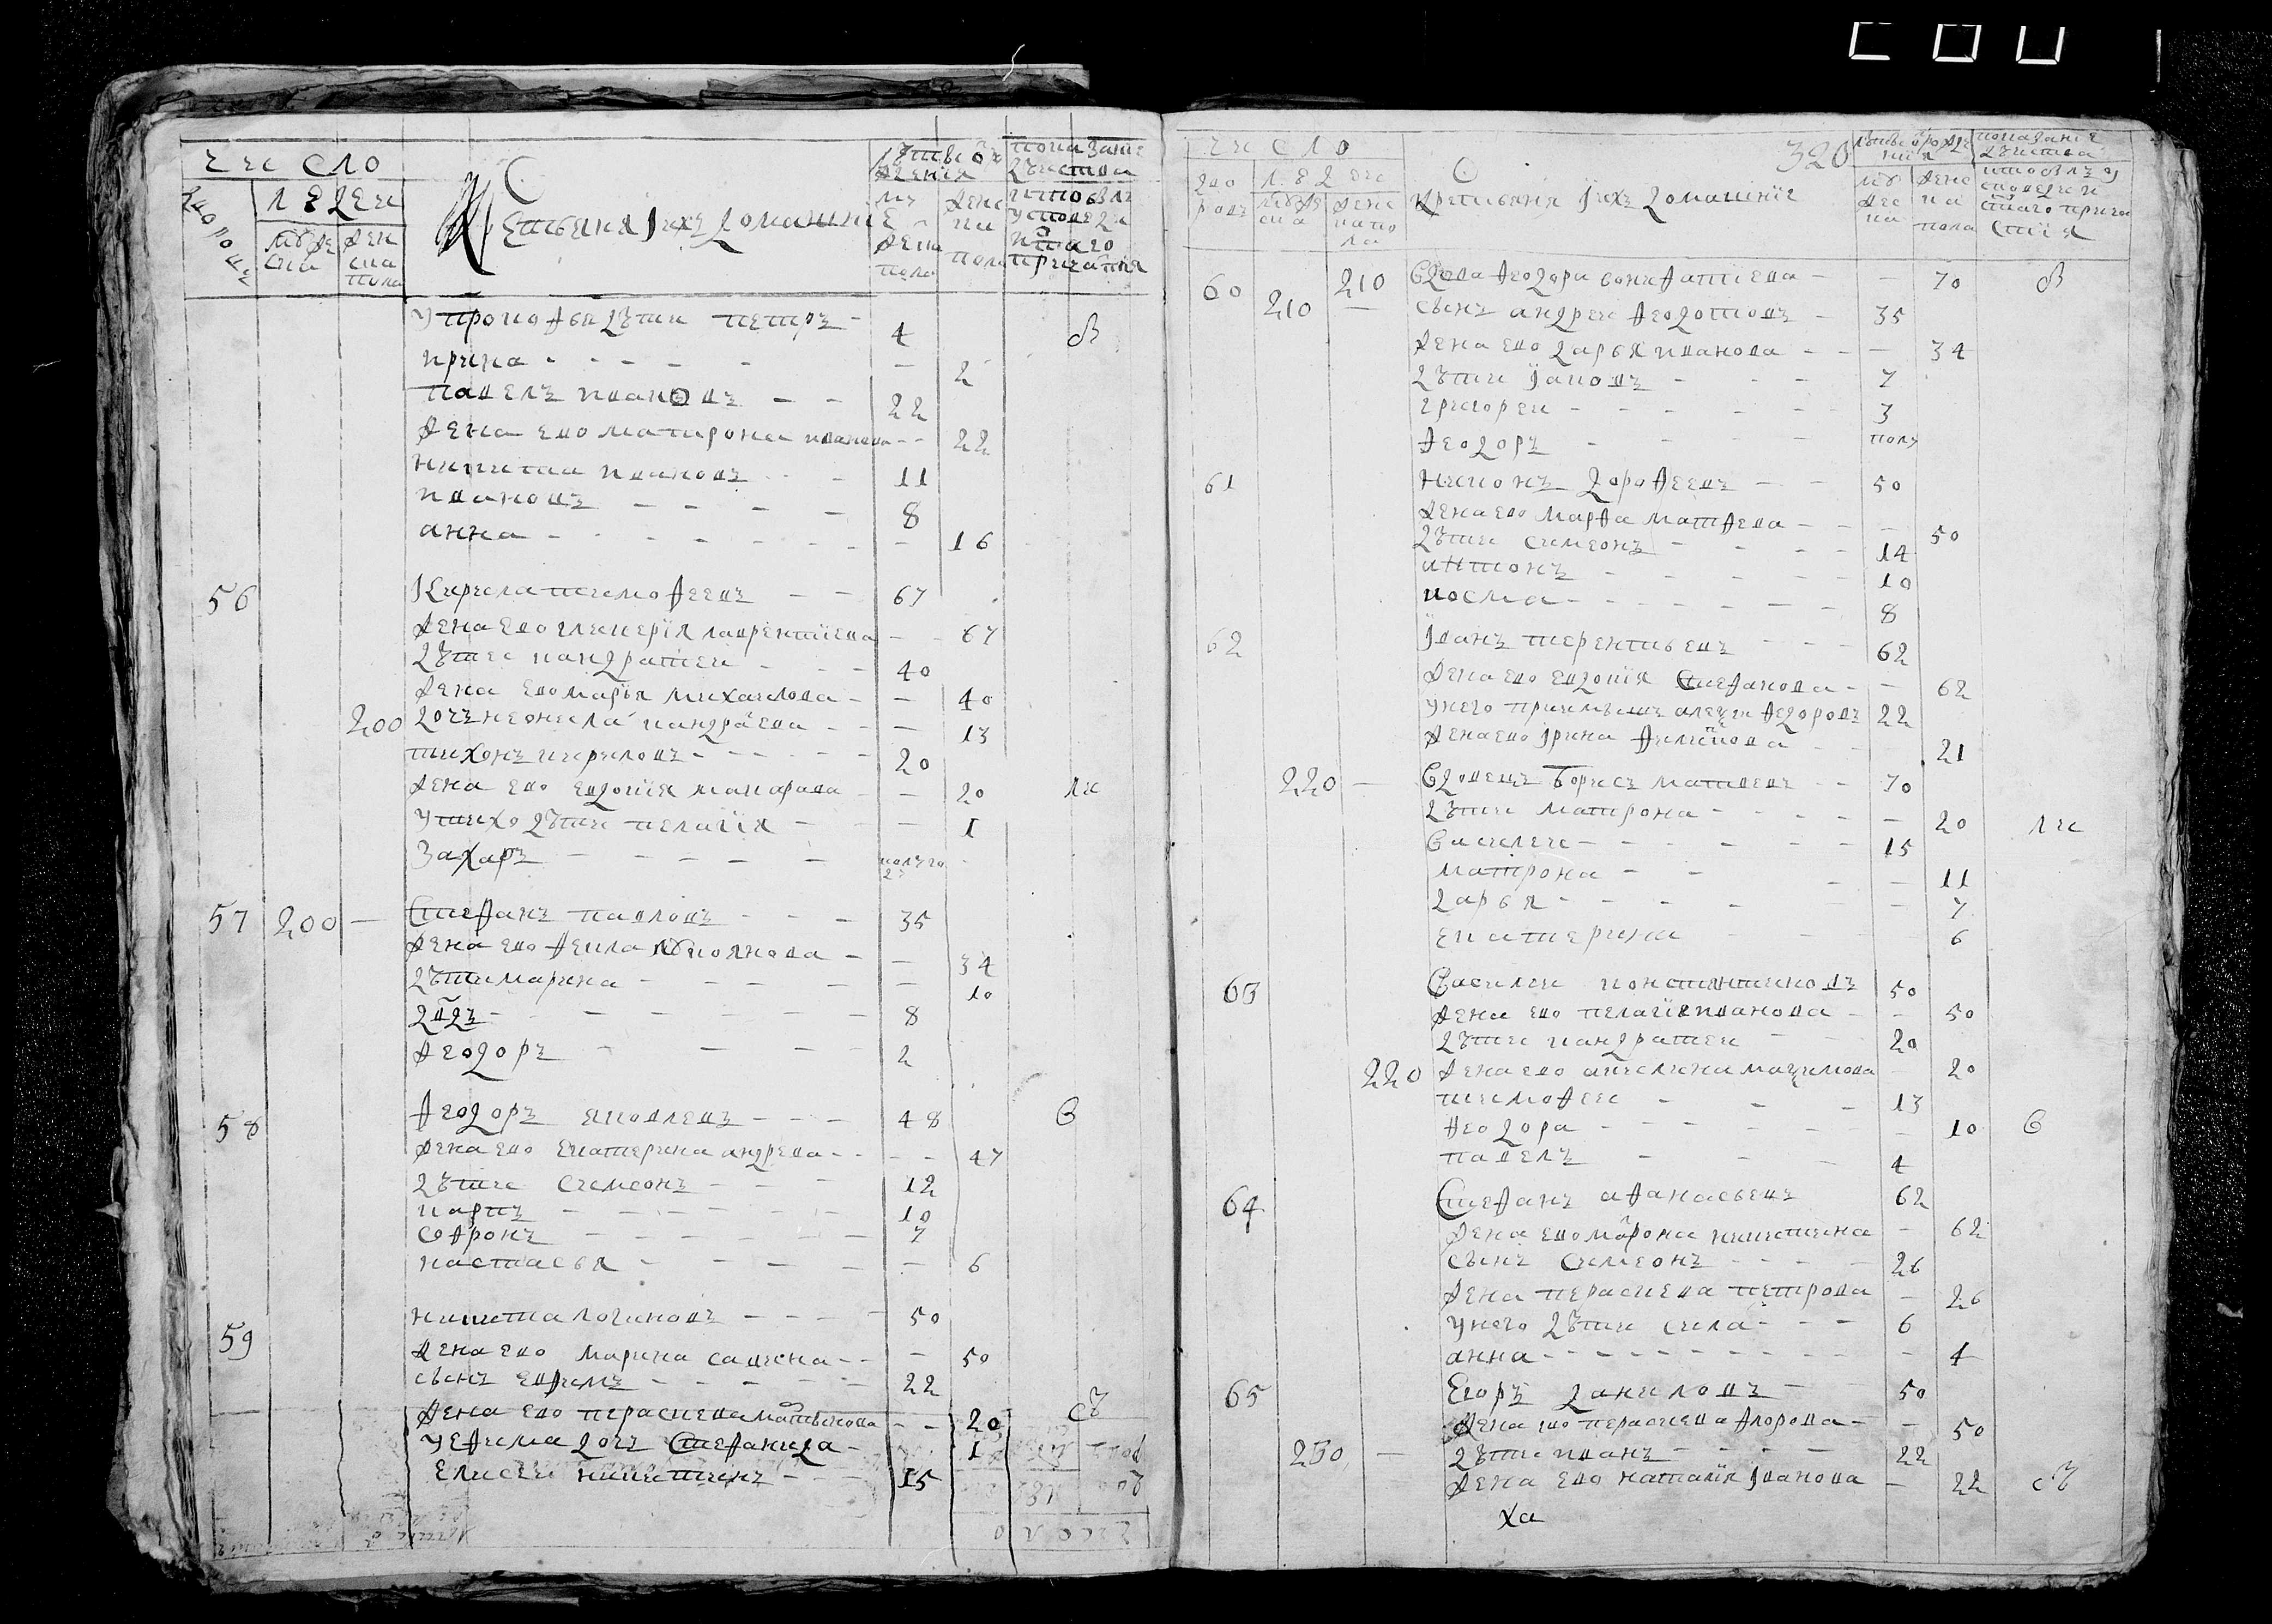 число
дворовъ
людей
мужеска
женска пола
Крестьяня и ихъ домашние
лѣтъ от рождения
мужеска пола
женска пола
показание действа
кто былъ у исповеди и святаго причастия
у прокофья дѣти петръ - 4
ирина - - - - - 2
павелъ ивановъ - - 22
жена ево матрона иванова - - 22
никита ивановъ - - 11
ивановъ - - - - 8
анна - - - - - - 16
56 Кирила тимофеевъ - - 67
жена ево гликерїя лаврентїева - - 67
дѣти кандратеи - - - 40
жена ево марїя михаилова - - 40
200 дочъ неонила кандраева - - - 13
тихонъ кириловъ - - - - - 20
жена ево евдокїя макарова - - 20
у тихо дѣти пелагїя - - - 1
Захаръ - - - - - полъго
57 200 - Стефанъ павловъ - - - 35
жена ево фекла лукоянова - - 34
дѣти марина - - - - - 10
двдъ - - - - - - 8
феодоръ - - - - 2
58 феодоръ яковлевъ - - - 48
жена ево екатерина андрева - - - - 47
дѣти симеонъ - - - 12
карпъ - - - - - - 10
софронъ - - - - - 7
настасья - - - - - 6
59 никита логиновъ - - - - 50
жена ево марина савина - - - 50
сынъ ефимъ - - - - - 22
жена ево парасковя матвѣева - - 20
у ефима дочъ стефанида - 1
елисеи никитинъ - - - 15
число
дворовъ
людей
мужеска
женска пола
Крестьяня и ихъ домашние
320
лѣтъ от рождения
мужеска
женска пола
показание действа
кто былъ у исповеди и святаго причастия
60 210 Вдова феодора вонифатїева - - 70
210 - сынъ андреи феодотовъ - 35
жена ево дарья иванова - - - 34
дѣти яковъ - - - 7
григореи - - - - - 3
феодоръ - - - - полу
61 никонъ дорофеевъ - - 50
жена ево марфа матфева - - - 50
дѣти симеонъ - - - - 14
антонъ - - - - - - 10
косма - - - - - - - 8
62 Иванъ терентьевъ - - - 62
жена ево евдокїя стефанова - - 62
у него приимышъ алеѯеи федоровъ 22
жена ево ирина филипова - - - 21
220 - Вдовецъ борисъ матвевъ - - 70
дѣти матрона - - - - - 20
василеи - - - - - - - 15
матрона - - - - 11
дарья - - - - - - 7
екатерина - - - - 6
63 Василеи константиновъ 50
жена ево пелагїя иванова - - 50
дѣти кандратеи - - 20
220 жена ево акилина маѯимова - 20
тимофеи - - - 13
феодора - - - - - - - 10
павелъ - - - 4
64 Стефанъ афанасьевъ 62
жена ево матрона никитина - 62
сынъ симеонъ - - - - 26
жена парасковя петрова - 26
у него дѣти сила - - - 6
анна - - - - - - - - - - 4
65 Егоръ даниловъ - - 50
жена ево парасковя флорова - - 50
230 - дѣти иванъ - - - - 22
жена ево наталїя иванова - 22
ха